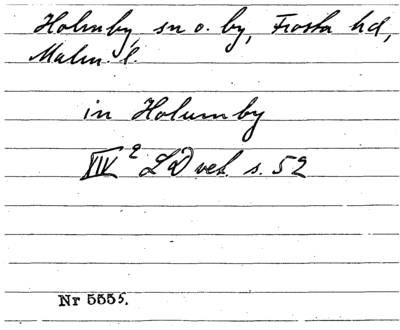 Holmby, sn o. by, Frosta hd,
Malm. l.
in Holumby
XIV² LDvet. s. 52
Nr 5555.